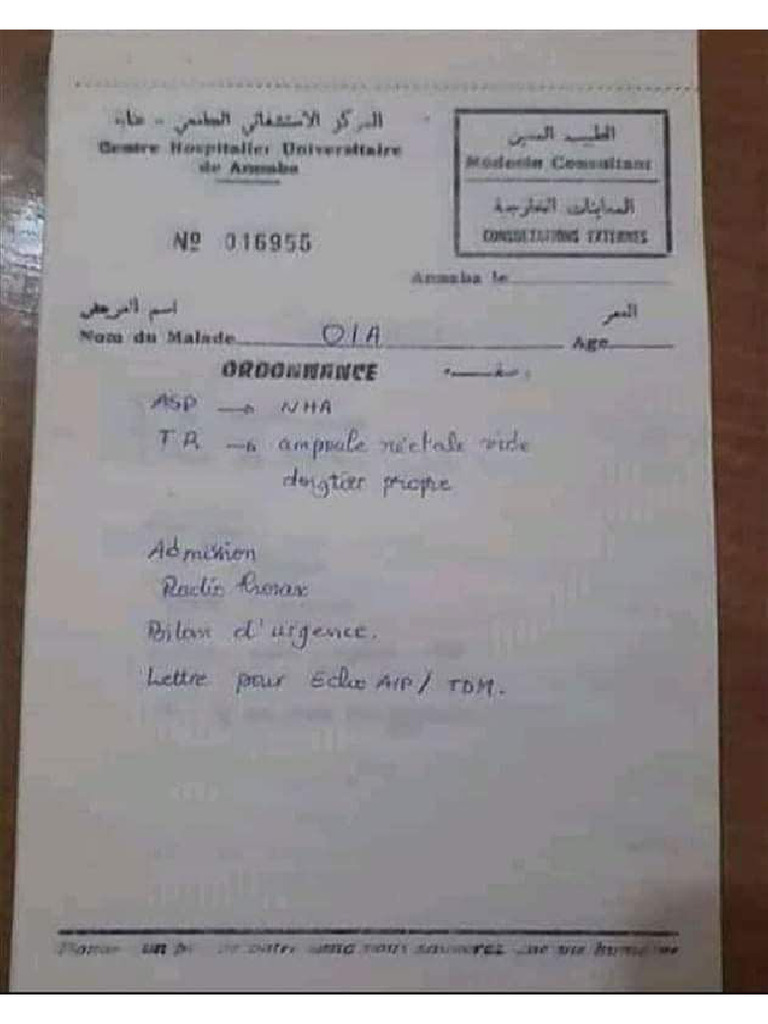 المركز الاستشفائي الجامعي - عنابة
Centre Hospitalier Universitaire
de Annaba
Nº 016955
الطبيب
Médecin Consultant
المعاينات الخارجية
CONSULTATIONS EXTERNES
Annaba le
اسم المريض
العمر
Nom du Malade OIA Age
ORDONNANCE وصفة
ASP → NHA
TR → ampoule réctale vide
doigtier propre
Admission
Radio thorax
Bilan d'urgence.
Lettre pour Echo A/P / TDM.
un de votre sang vous sauverez une vie humaine